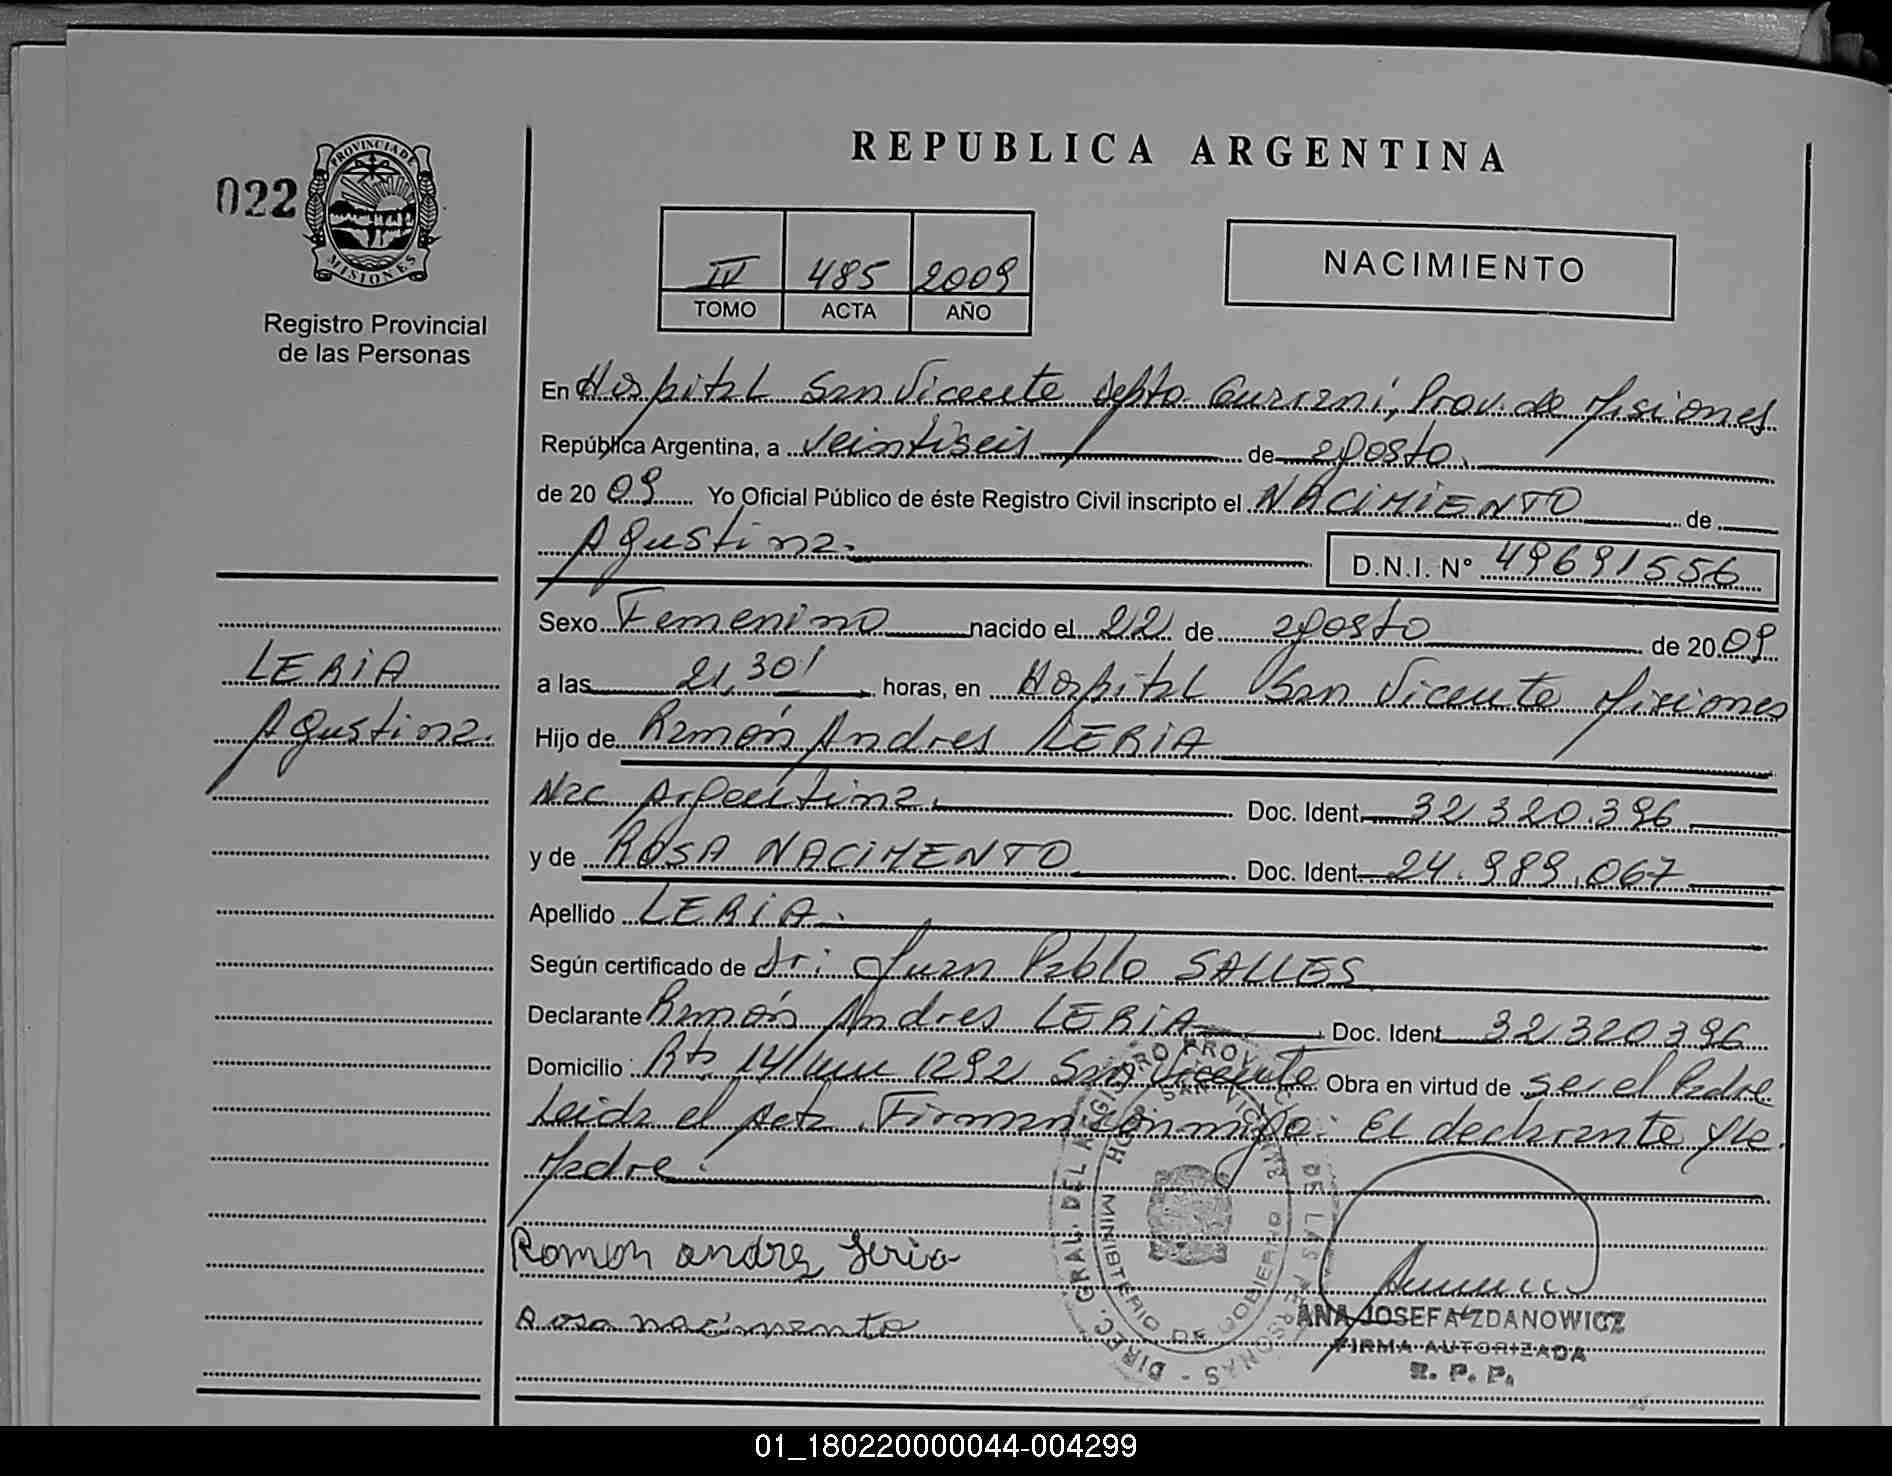 REPUBLICA ARGENTINA
022
PROVINCIA DE
MISIONES
Registro Provincial
de las Personas
IV 485 2009
TOMO ACTA AÑO
NACIMIENTO
En Hospital San Vicente Depto Guaraní, Prov. de Misiones
República Argentina, a veintiseis de agosto.
de 20 09 Yo Oficial Público de éste Registro Civil inscripto el NACIMIENTO de
Agustina. D.N.I. N° 49691556
Sexo Femenino nacido el 22 de agosto de 20 09
a las 21,30' horas, en Hospital San Vicente Misiones
LERIA
Agustina.
Hijo de Ramón Andres LERIA
Nac Argentina. Doc. Ident. 32.320.396
y de ROSA NACIMENTO Doc. Ident. 24.989.067
Apellido LERIA.
Según certificado de Dr: Juan Pablo SALLES
Declarante Ramón Andres LERIA Doc. Ident 32.320396
Domicilio: Rta 14 km 1292 San Vicente Obra en virtud de ser el Padre
Leida el Acta. Firman conmigo: El declarante y la
Madre.
Ramon andres leria
Rosa nacimento
DIREC. GRAL. DEL REGISTRO PROV. DE LAS PERSONAS -
MINISTERIO DE GOBIERNO
SAN VICENTE
ANA JOSEFA ZDANOWICZ
FIRMA AUTORIZADA
R. P. P.
01_180220000044-004299